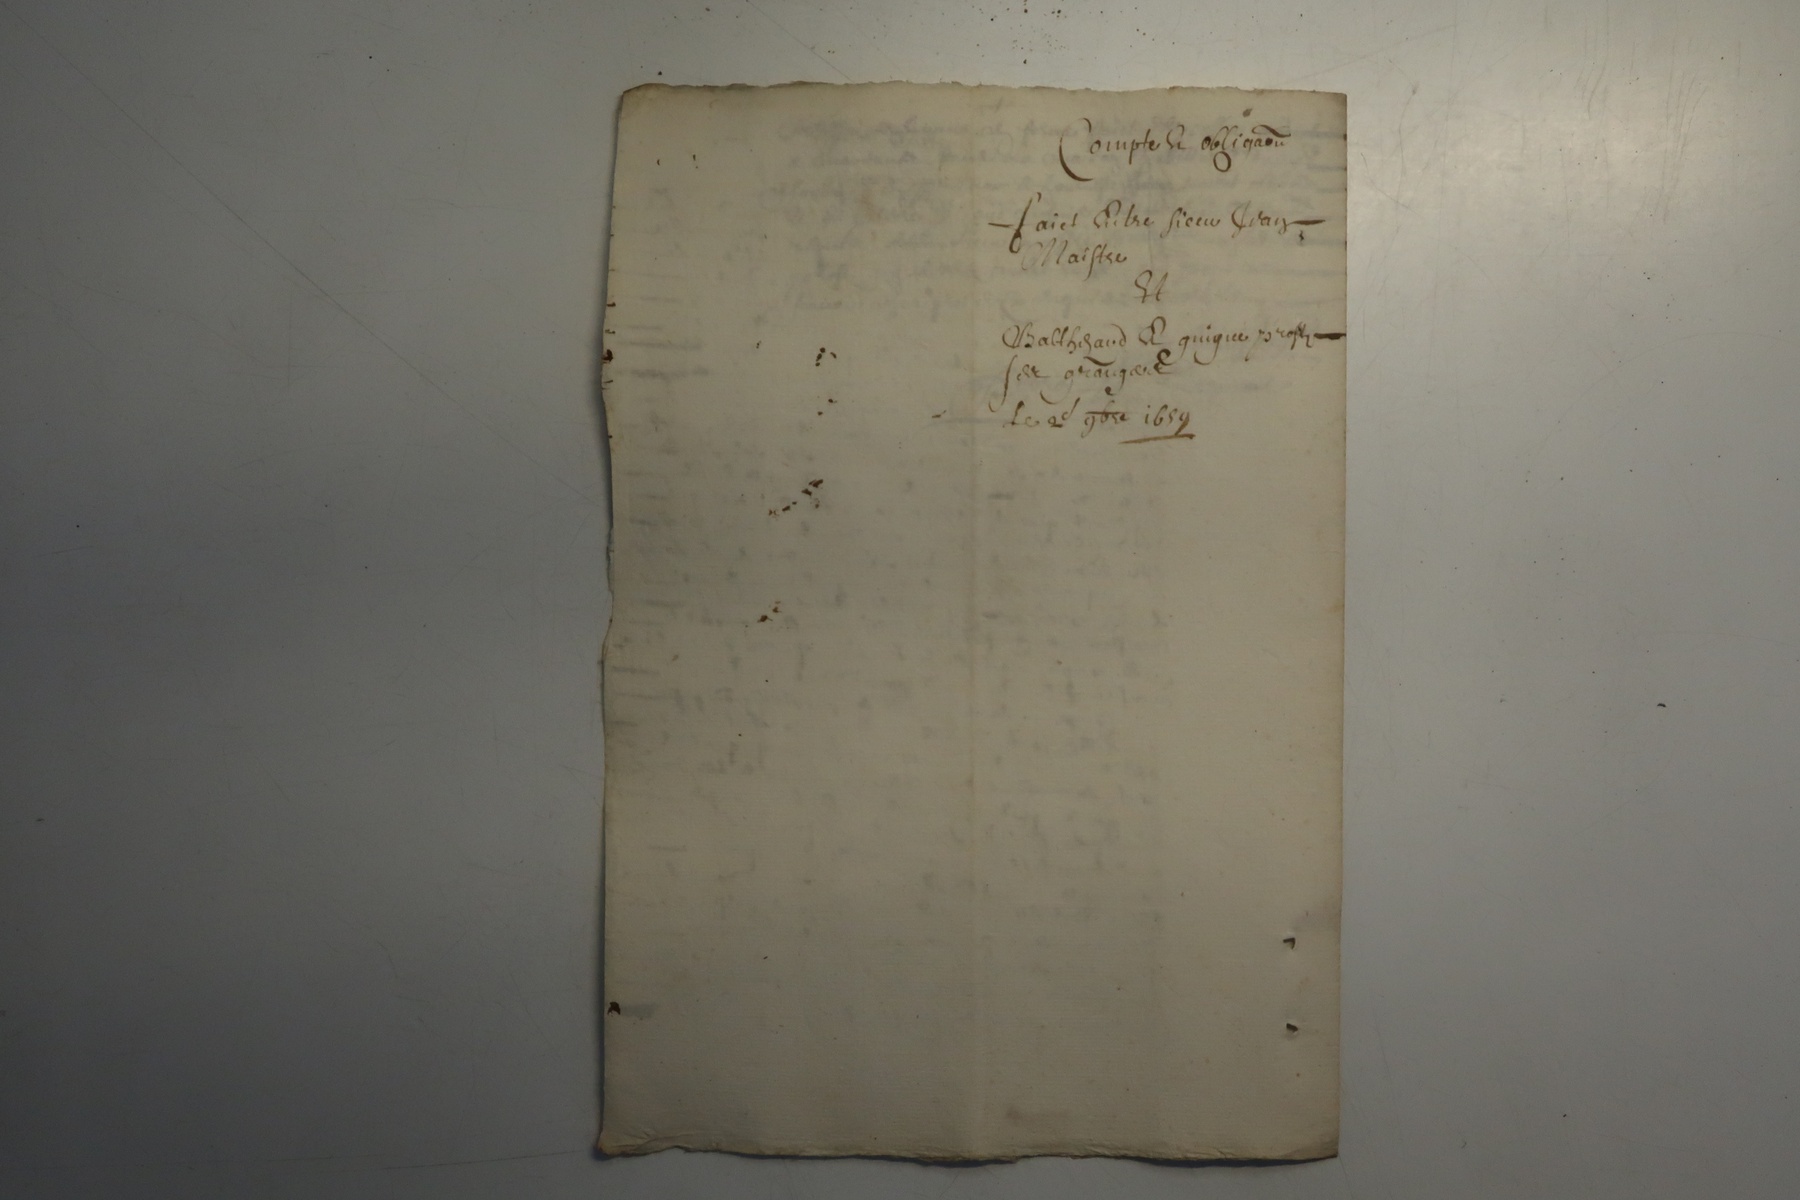 Compte & obligaon
faict Entre sieur Jean
Maistre
Et
Balthezard & guigue
ses grangers
Le 2e 9bre 1659